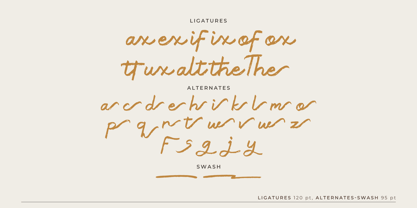 LIGATURES
ax ex if ix of ox
tt ux alt the The
ALTERNATES
a c d e h i k l m o
p q n t u v w z
F s g j y
SWASH
LIGATURES 120 pt, ALTERNATES-SWASH 95 pt